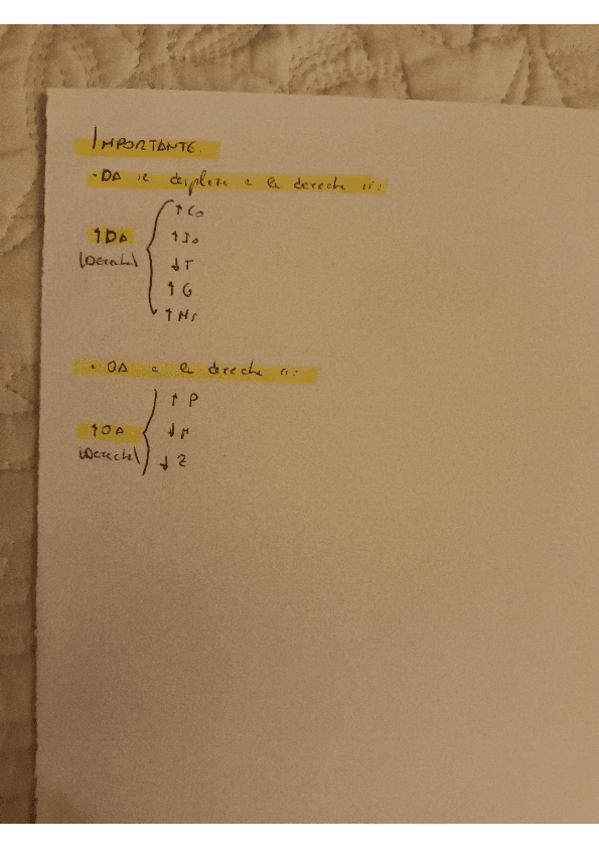 IMPORTANTE.
· DA se desplaza a la derecha si:
↑ C₀
↑ DA
↑ I₀
(Derecha)
↓ T
↑ G
↑ Ns
· OA a la derecha si:
↑ P
↑ OA
(Derecha)
↓ Z